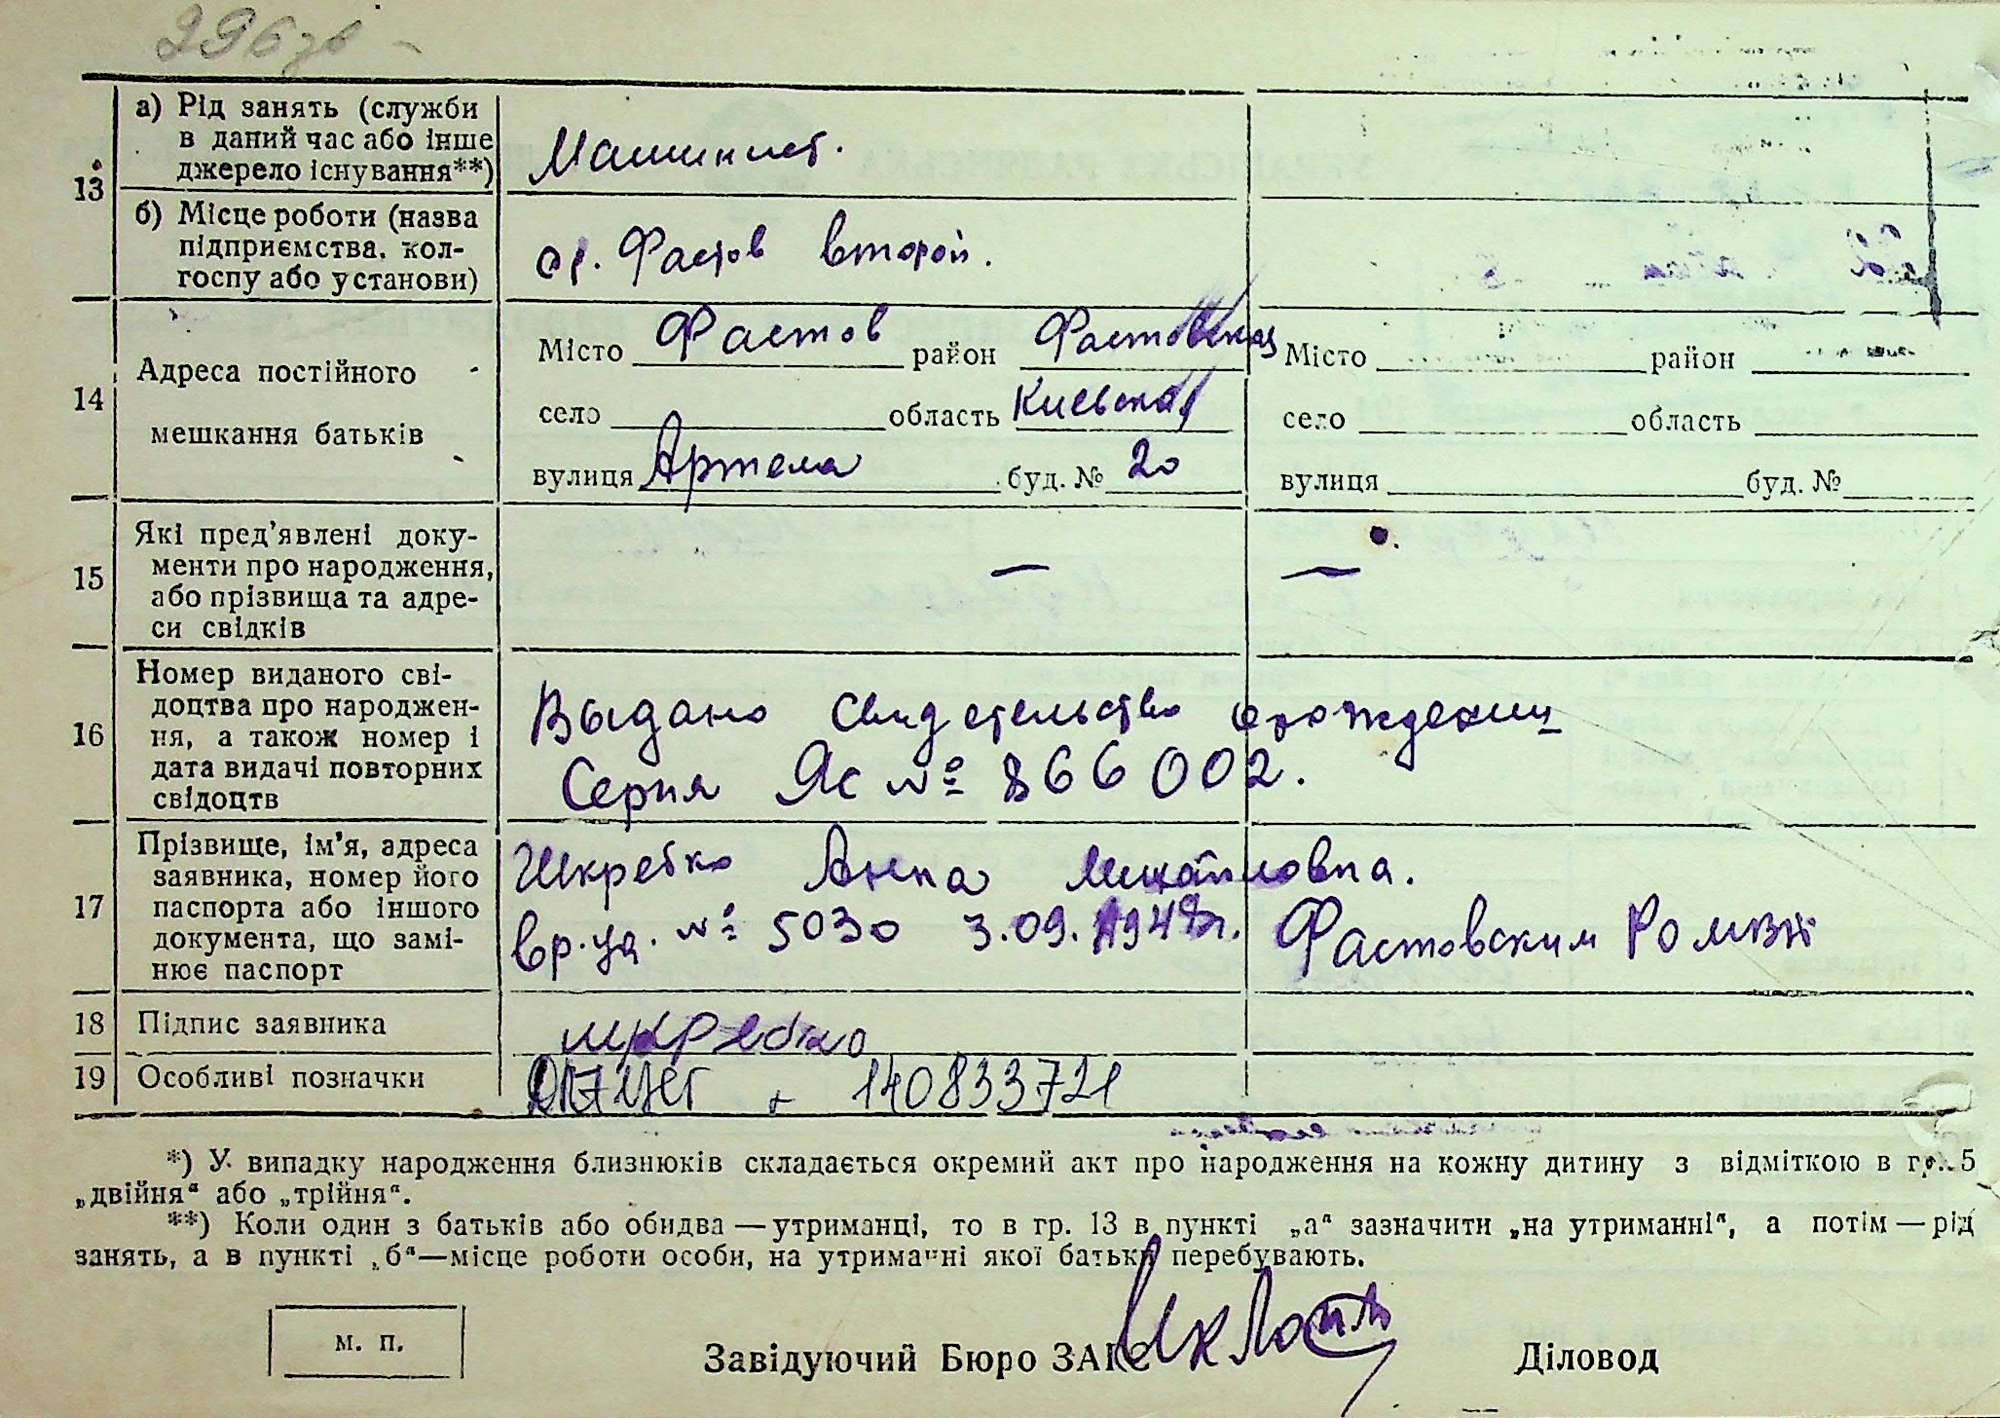 296 зв -
13
а) Рід занять (служби
в даний час або інше
джерело існування**)
Машинист.
б) Місце роботи (назва
підприємства, кол-
госпу або установи)
ст. Фастов второй.
14
Адреса постійного
мешкання батьків
Місто Фастов район Фастовская
село область Киевская
вулиця Артема буд. № 20
Місто район
село область
вулиця буд. №
15
Які пред'явлені доку-
менти про народження,
або прізвища та адре-
си свідків
— —
16
Номер виданого сві-
доцтва про народжен-
ня, а також номер і
дата видачі повторних
свідоцтв
Выдано свидетельство о рождении
Серия Яс № 866002.
17
Прізвище, ім'я, адреса
заявника, номер його
паспорта або іншого
документа, що замі-
нює паспорт
Шкребко Анна Михайловна.
вр. уд. № 5030 3.09.1948г. Фастовским РОМВД
18 Підпис заявника
шкребко
19 Особливі позначки
140833721
*) У випадку народження близнюків складається окремий акт про народження на кожну дитину з відміткою в гр. 5
„двійня" або „трійня".
**) Коли один з батьків або обидва — утриманці, то в гр. 13 в пункті „а" зазначити „на утриманні", а потім — рід
занять, а в пункті „б"—місце роботи особи, на утриманні якої батьки перебувають.
м. п.
Завідуючий Бюро ЗАГС
Діловод